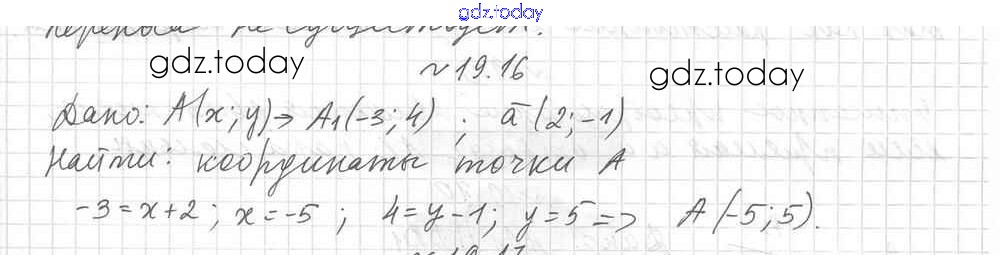 gdz.today
не существует.
gdz.today
№19.16
gdz.today
Дано: A(x;y)→ A₁(-3;4) ; ā (2;-1)
Найти: координаты точки A
-3=x+2; x=-5 ; 4=y-1; y=5=> A(-5;5).